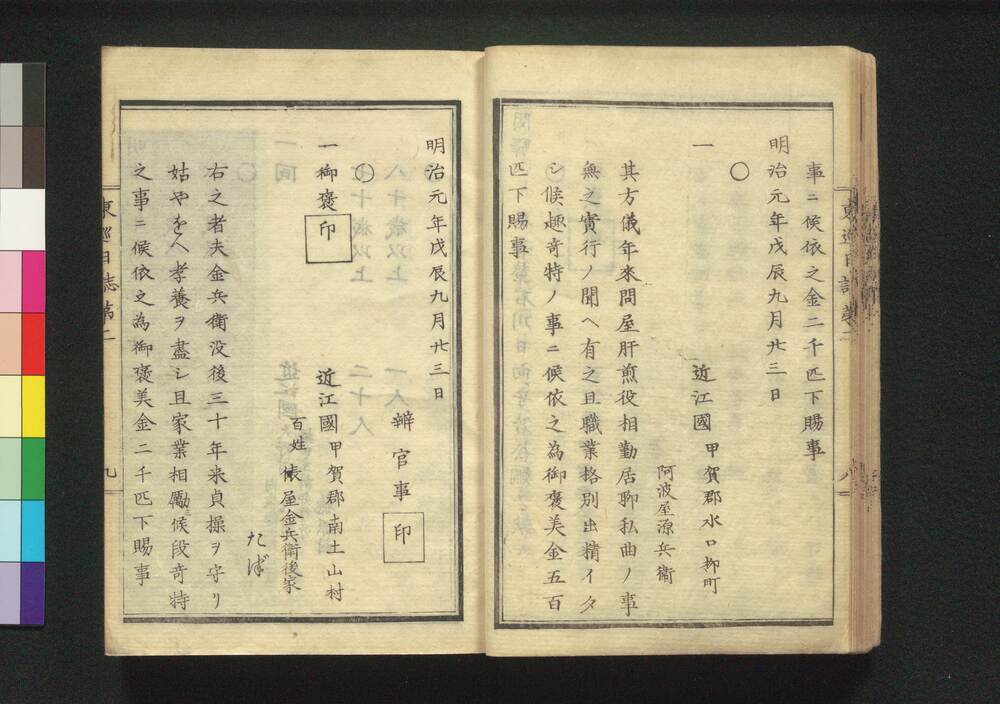 事ニ候依之金二千匹下賜事
明治元年戊辰九月廿三日
○
一
近江國甲賀郡水口柳町
阿波屋源兵衞
其方儀年來問屋肝煎役相勤居聊私曲ノ事
無之實行ノ聞ヘ有之且職業格別出精イタ
シ候趣奇特ノ事ニ候依之為御褒美金五百
匹下賜事
東巡日誌第二
八
明治元年戊辰九月廿三日
辨官事印
一御褒印
近江國甲賀郡南土山村
○
百姓俵屋金兵衞後家
たば
右之者夫金兵衞没後三十年来貞操ヲ守リ
姑やをへ孝養ヲ盡シ且家業相勵候段奇特
之事ニ候依之為御褒美金二千匹下賜事
東巡日誌第二
九